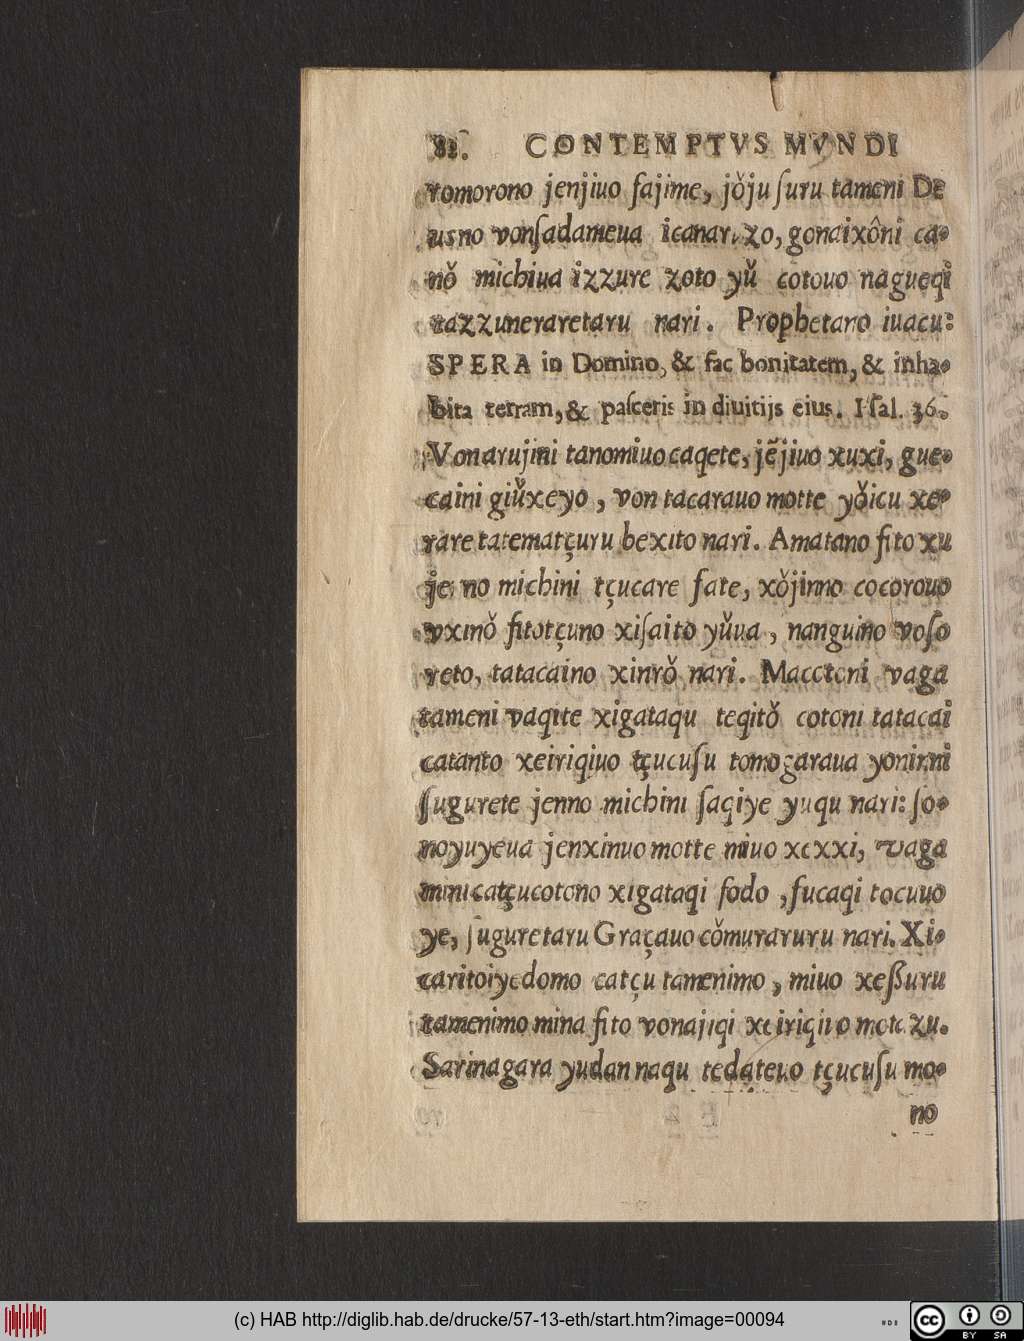 82. CONTEMPTVS MVNDI
romorono jenjiuo ſajime, jǒju ſuru tameni DE
usno vonſadameua icanaruzo, gonaixôni ca-
nǒ michiua izzure zoto yǔ cotouo nagueqi
tazzuneraretaru nari. Prophetano iuacu:
SPERA in Domino, & fac bonitatem, & inha-
bita terram, & paſceris in diuitijs eius. Pſal. 36.
Vonarujini tanomiuo caqete, jẽjiuo xuxi, gue-
caini giǔxeyo, von tacarauo motte yǒicu xe-
rare tatematçuru bexito nari. Amatano fito xu
je no michini tçucare fate, xǒjinno cocorouo
vxinǒ fitotçuno xiſaito yǔua, nanguino voſo
reto, tatacaino xinrǒ nari. Maccotoni vaga
tameni vaqite xigataqu teqitǒ cotoni tatacai
catanto xeiriqiuo tçucuſu tomogaraua yoninni
ſugurete jenno michini ſaqiye yuqu nari: ſo-
noyuyeua jenxinuo motte miuo xexxi, vaga
minicatçucotono xigataqi fodo, fucaqi tocuuo
ye, ſuguretaru Graçauo cǒmuraruru nari. Xi-
caritoiyedomo catçu tamenimo, miuo xeſſuru
tamenimo mina fito vonajiqi xeiriqiuo motezu.
Sarinagara yudan naqu tedateuo tçucuſu mo-
no
(c) HAB http://diglib.hab.de/drucke/57-13-eth/start.htm?image=00094
cc BY SA